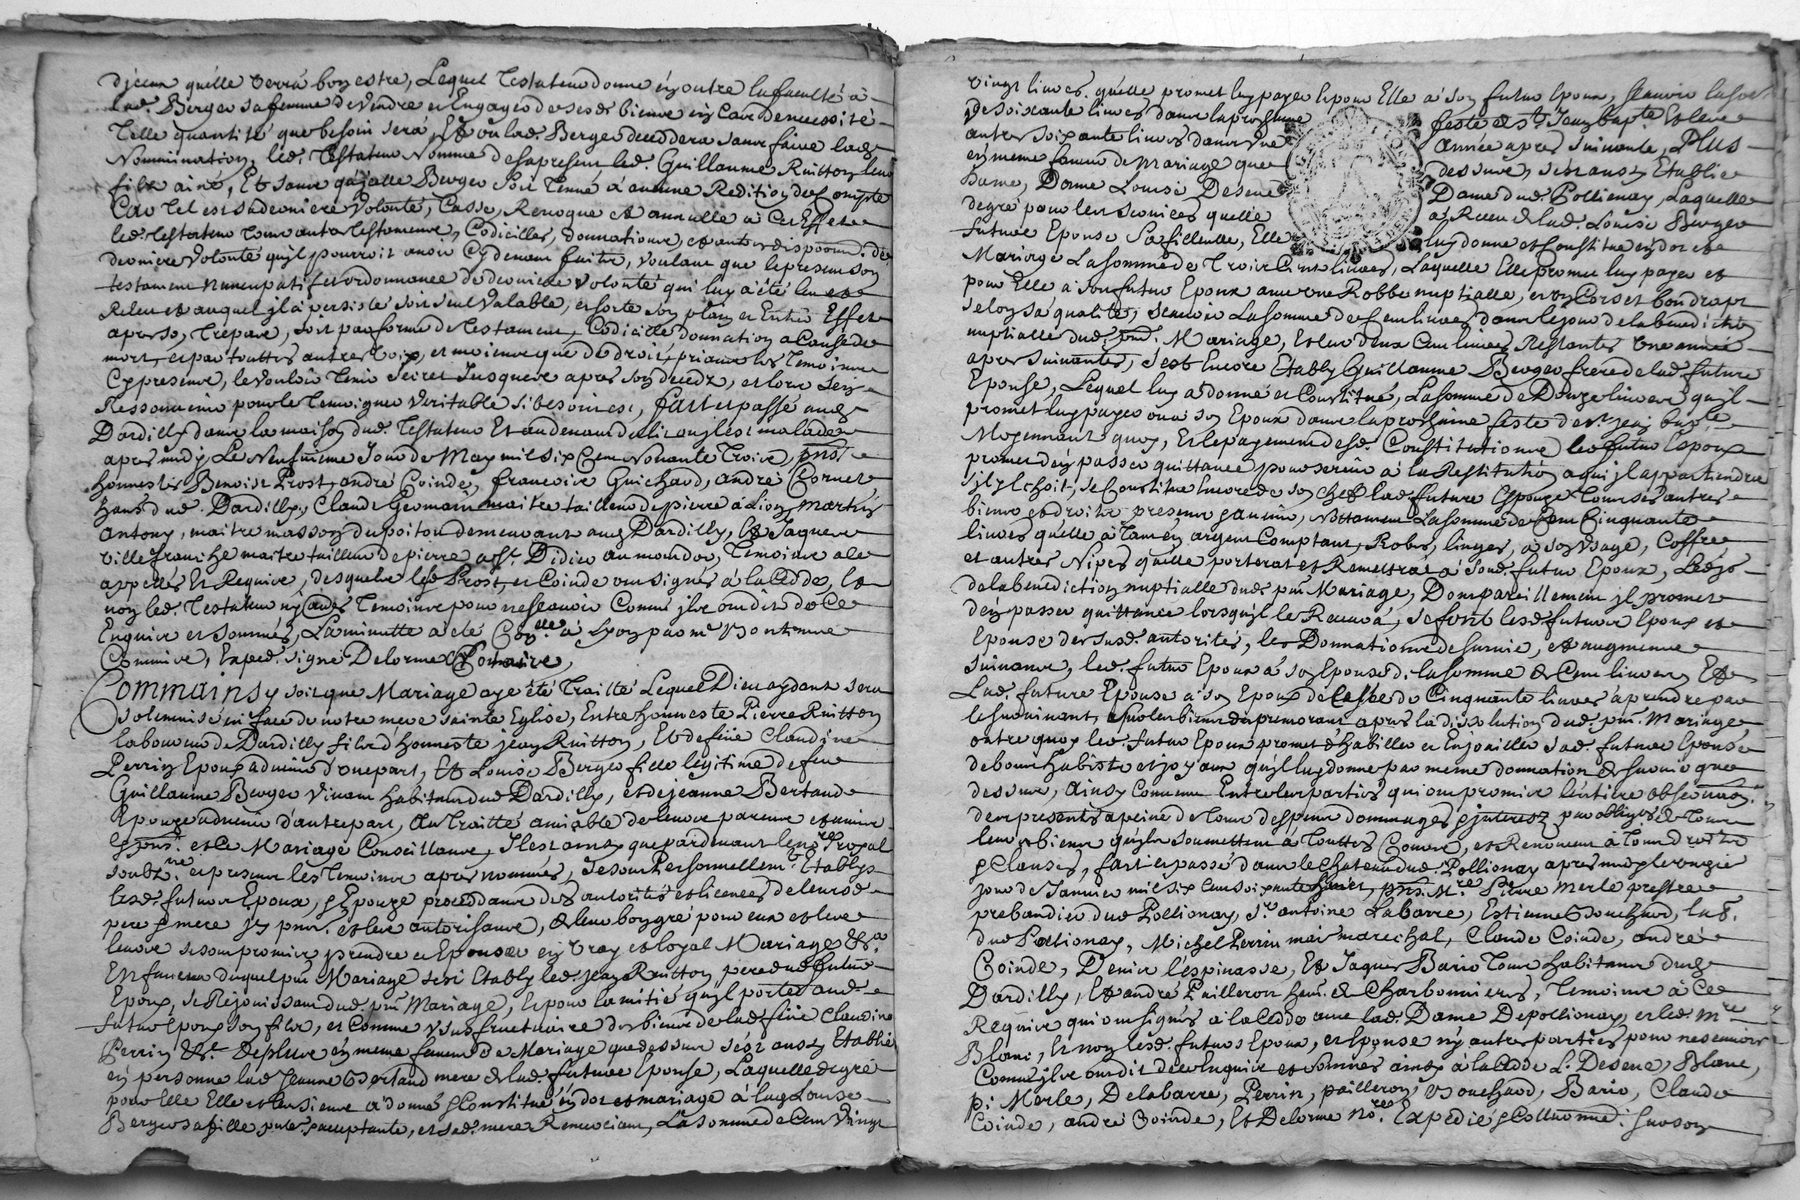 d'jceux quelle verra bon estre, Lequel Testateur donne en outre la faculté a
lad. Berger sa femme de vendre et Engager de sesds biens en Cas de necessité
Telle quantité que besoin sera, Et ou lad. Berger decedera sans faire lad.
Nommination, led. Testateur Nomme des apresent led. Guillaume Ruitton leur
filz ainé, Et sans q'jcelle Berger soit Tenue a aucune Reddition de Compte
Car Tel est sa derniere volonté, Casse, Revoque et annulle a Cet Effet
led. Testateur tous autres testamens, Codicilles, donnations, et autres disposions. de
derniere volonté qu'jl pourroit avoir Cy devant faites, voulant que le present son
testament nuncupatif et ordonnance de derniere volonté qui luy a été leu et
Releu et auquel jl a persisté soit seul valable, et sorte son plain et Entier Effet
apres son Trepas, soit par forme de Testament, Codicille donnation a Cause de
mort, et par touttes autres voix, et moiens que de droit, priant les Temoins
Cy presens, le vouloir Tenir secret Jusques apres son deceds, et lors s'en
Ressouvenir pour le Temoigner veritable si besoin est, fait et passé aud.
Dardilly dans la maison dud. Testateur Et au devant du lit ou jl est malade
apres midy Le Neufvieme Jour de May mil six Cens Nouante Trois, pns.
honnestes Benoist Prost, andré Coinde, francois Guichard, andré Cornet
habs dud. Dardilly, Claude Germain maitre tailleur de pierre a Lion, Martin
Antony, maitre masson du poitou demeurant aud. Dardilly, Et Jaques
ville franche maitre tailleur de pierre a St. Didier au mondor, Temoins a ce
appellés Et Requis, desquels lesd. Prost, et Coinde ont signés à la Cedde, Et
non led. Testateur ny autres Temoins pour ne scavoir Comme jls ont dit de Ce
Enquis et sommés, La minutte a été Con.llée a Lyon par Mr
Commis, Exped. signé Delorme Notaire,
Commainsy soit que Mariage aye été Traitté Lequel Dieu aydant sera
solemnisé en face de notre mere sainte Eglise, Entre honneste Pierre Ruitton
laboureur de Dardilly fils d'honneste jean Ruitton, Et de feüe Claudine
Perrin Epoux advenir d'une part, Et Louise Berger fille legitime de feu
Guillaume Berger vivant habitant dud. Dardilly, et de jeanne Bertaud
Epouze advenir d'autre part, Au Traitté amiable de leurs parens et amis
pns. et le Mariage Conseillans, Il est ainsy que pardevant le nore. royal
soubz.né et presens les Temoins apres nommés, se sont Personnellemt Etablys
lesd. futurs Epoux, & Epouze procedants des autorités et licences de leursd.
pere & mere jcy pns. et les autorisans, & de leur bon gré pour eux et les
leurs se sont promis prendre et Epouser en vray et loyal Mariage &a.
En faveur duquel pnt Mariage s'est Etably led. Jean Ruitton pere dud. futur
Epoux, se Rejouissant dud. pnt Mariage, Et pour lamitié qu'jl porte aud.
futur Epoux son filz, et Comme Usufructuaire des biens de lad. feüe Claudine
Perrin &c. deplus en meme faveur de Mariage que dessus s'est aussy Etablie
en personne lad. Jeanne Bertaud mere de lad. future Epouse, Laquelle de gré
pour Elle Elle et les siens a donné & Constitué en dot et mariage à lad. Louise
Berger sa fille pnte & acceptante, et sad. mere Remerciant, La somme de Cent Vingt
vingt livres. quelle promet luy payer et pour Elle a son futur Epoux, scavoir la somme
de soixante livres dans la prochaine feste de St. Jean Bapte. Et les
autres soixante livres dans une année apres suivante, Plus
en meme faveur de Mariage que dessus, s'est aussy Etablie
Dame, Dame Louise Desene Dame dud. Pollienay, Laquelle
de gré pour les services quelle a Receu de lad. Louise Berger
future Epouse Sa fillelle, Elle luy donne et Constitue en dot et
Mariage La somme de Trois Cens livres, Laquelle Elle promet luy payer et
pour Elle a son futur Epoux avec une Robbe nuptialle, et un Corset bon drapt
selon sa qualité, scavoir La somme de Cent livres dans le jour de la benediction
nuptialle dud. pnt. Mariage, Et les deux Cens livres Restantes une année
apres suivante, s'est Encore Etably Guillaume Berger frere de lad. future
Epouse, Lequel luy a donné et Constitué, La somme de Douze livres qu'jl
promet luy payer ou a son Epoux dans la prochaine feste de St. jean bapte
Moyennant quoy, Et le payement desd. Constitutions led. futur Epoux
promet d'en passer quittance pour servir a la Restitution a qui jl appartiendra
s'jl y Echoit, se Constitue Encore de son chef lad. future Epouze Tous ses autres
biens et droits presens & avenir, Nottament La somme de Cent Cinquante
livres qu'elle à Tant en argent Comptant, Robes, linges, a son Usage, Coffre
et autres Nipes qu'elle porterat et Remettra a sond. futur Epoux, Led. jour
de la benediction nuptialle dud. pnt Mariage, Dont pareillement jl promet
d'en passer quittance lorsqu'jl le Recevra, se font lesd. futurs Epoux et
Epouse des susd. autorités, les Donnations de survie, et augmens
suivans, led. futur Epoux a son Epouse de la somme de Cent livres, Et
Lad. future Epouse a son Epoux de Celle de Cinquante livres a prendre par
le survivant, sur les biens du premourant apres la dissolution dud. pnt. Mariage
outre quoy led. futur Epoux promet d'habiller et Enjoailler sad. future Epouse
de bons habits et joyaux qu'jl luy donne par meme donnation de survie que
dessus, Ainsy Convenu Entre les parties qui ont promis lentiere observaon.
des presents apeine de tous despens dommages & jnteretz par obligés de tous
leurs biens qu'jls soumettent a Touttes Cours, et Renoncent a Tous droits
& Clauses, fait et passé dans le Chateau dud. Pollionay apres midy le onzie
jour de Janvier mil six Cens soixante, pns. Mre Pierre Merle prestre
prebandier dud. Pollionay, Sr. antoine Labarre, Estienne Bouchard, lab.
dud Pollionay, Michel Perrin mais marechal, Claude Coinde, andré
Coinde, Denis l'espinasse, Et Jaques Bario Tous habitans dud.
Dardilly, Et andré Pailleron habt. de Charbonnieres, Temoins a Ce
Requis qui ont signés a la Cedde avec lad. Dame De pollionay, et led. Mre
Blanc, Et non lesd. futurs Epoux, et Epouse ny autres parties pour ne scavoir
Comme jls ont dit de ce Enquis et sommés ainsy a la Cedde L. Desene, Blanc,
P: Merles, Delabarre, Perrin, pailleron, Bouchard, Bario, Claude
Coinde, andré Coinde, Et Delorme nore. Expedié & Collationné: sur son